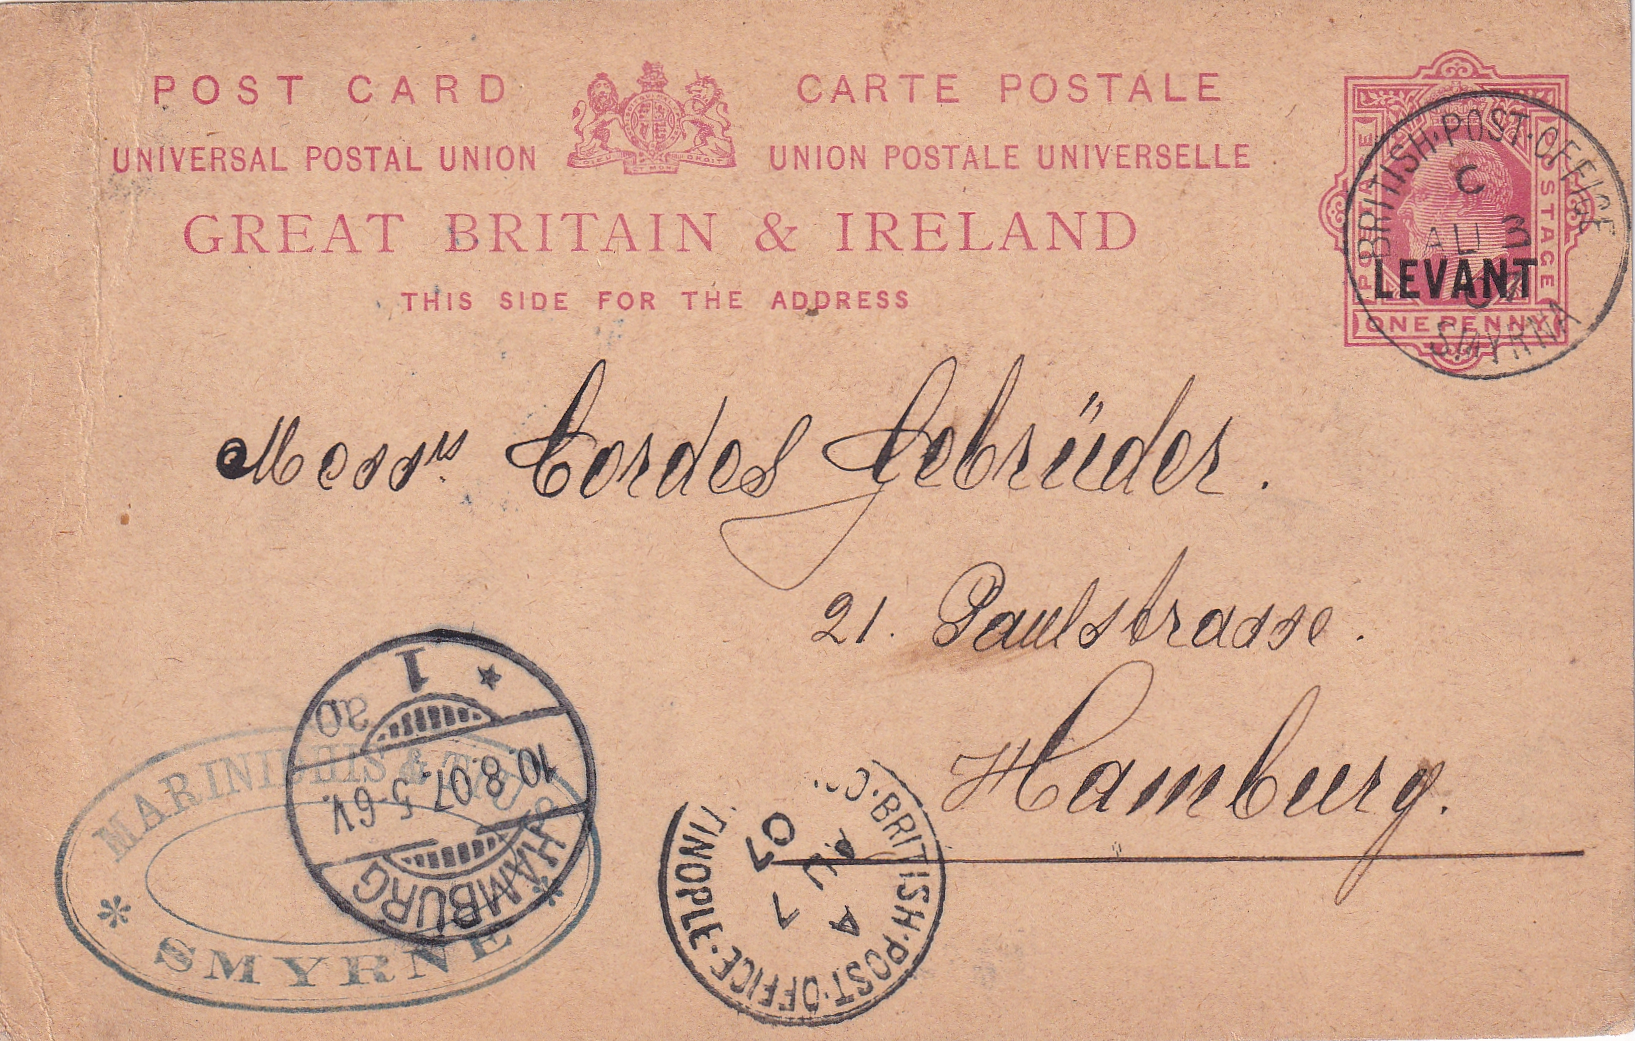 POST CARD
CARTE POSTALE
UNIVERSAL POSTAL UNION
UNION POSTALE UNIVERSELLE
GREAT BRITAIN & IRELAND
THIS SIDE FOR THE ADDRESS
POSTAGE
ONE PENNY
LEVANT
BRITISH·POST·OFFICE
C
AU 3
07
SMYRNA
Messrs Cordes Gebrüder.
21. Paulstrasse.
Hamburg.
HAMBURG
10.8.07. 5-6V.
* 1
SMYRNE
BRITISH·POST·OFFICE·
TINOPLE
A
AU 7
07